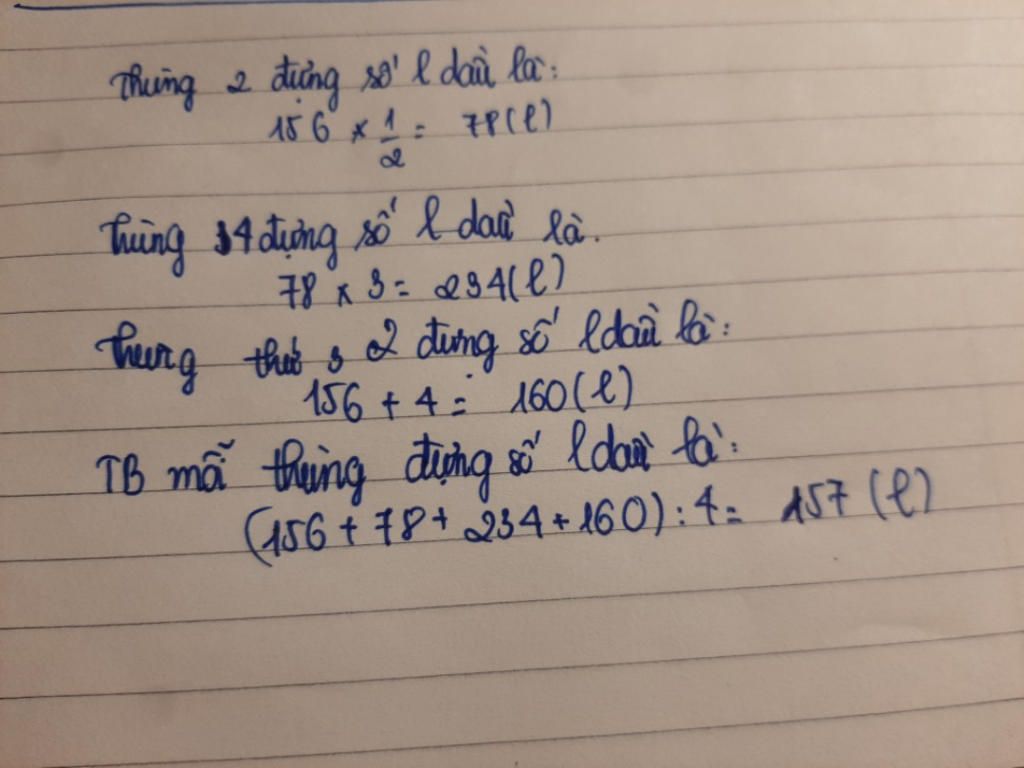 Thùng 2 đựng số l dầu là:
156 × 1/2 = 78 (l)
Thùng 4 đựng số l dầu là.
78 × 3 = 234 (l)
Thung thứ 3 2 đựng số l dầu là:
156 + 4 = 160 (l)
TB mỗ thùng đựng số l dầu là:
(156 + 78 + 234 + 160) : 4 = 157 (l)